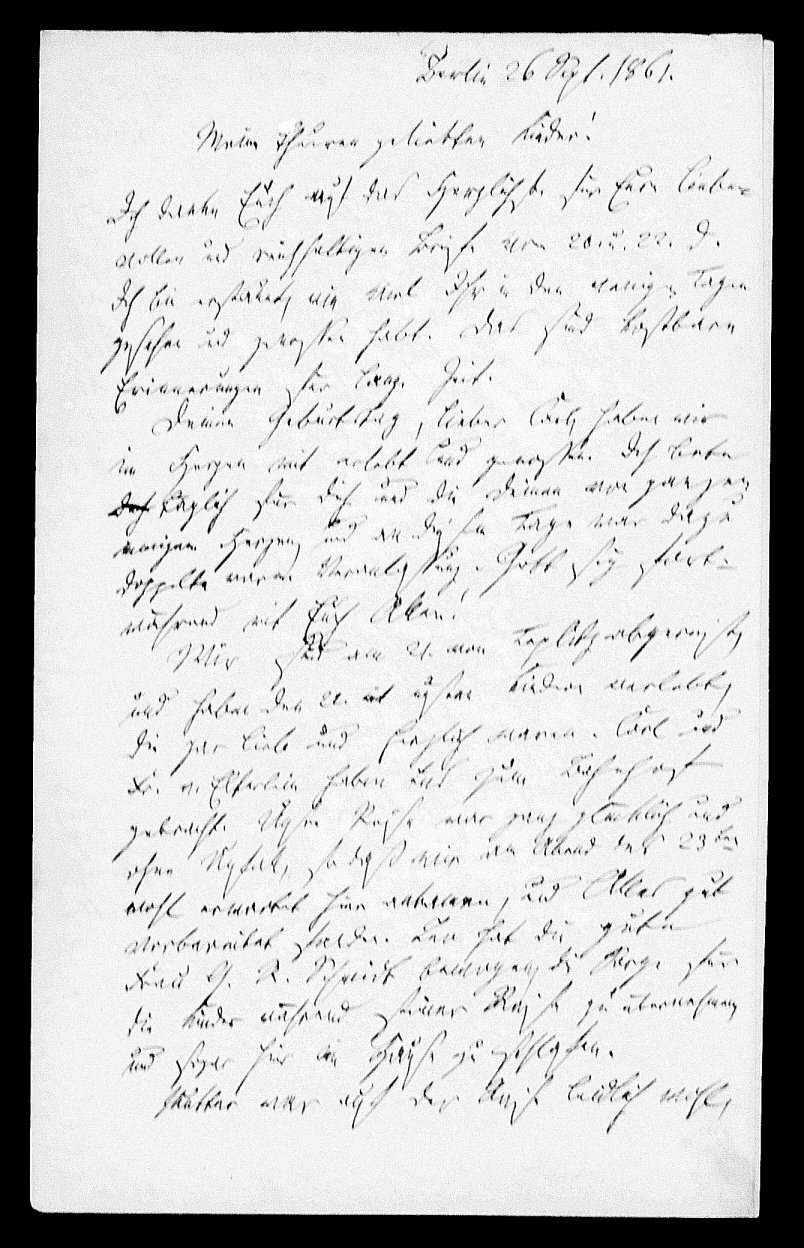 Berlin 26 Sept. 1861.
Meine theuren geliebten Kinder!
Ich danke Euch auf das Herzlichste für Eure liebe-
vollen und reichhaltigen Briefe vom 20. u. 22. d.
Ich bin erstaunt, wie viel Ihr in den wenigen Tagen
gesehen und genossen habt. Das sind kostbare
Erinnerungen für lange Zeit.
Deinen Geburtstag, lieber Carl, haben wir
im Herzen mit erlebt und genossen. Ich bete
täglich für Dich und die Deinen von ganzem
Herzen, und an diesem Tage war dazu
doppelte Veranlassung. Gott sey fort-
während mit Euch Allen!
Wir sind am 21. von Teplitz abgereist,
und haben den 22. mit unsern Kindern verlebt,
die gar lieb und herzlich waren. Carl und
Fr. v. Elterlein haben uns zum Bahnhof
gebracht. Unsre Reise war ganz glücklich und
ohne Unfall, so daß wir am Abend des 23ten
wohl erwartet hier ankamen, und Alles gut
vorbereitet fanden. Leo hat die gute
Frau G. R. Schmidt bewogen, die Sorge für
die Kinder während seiner Reise zu übernehmen
und sogar hier im Hause zu schlafen.
Mutter war auf der Reise leidlich wohl,